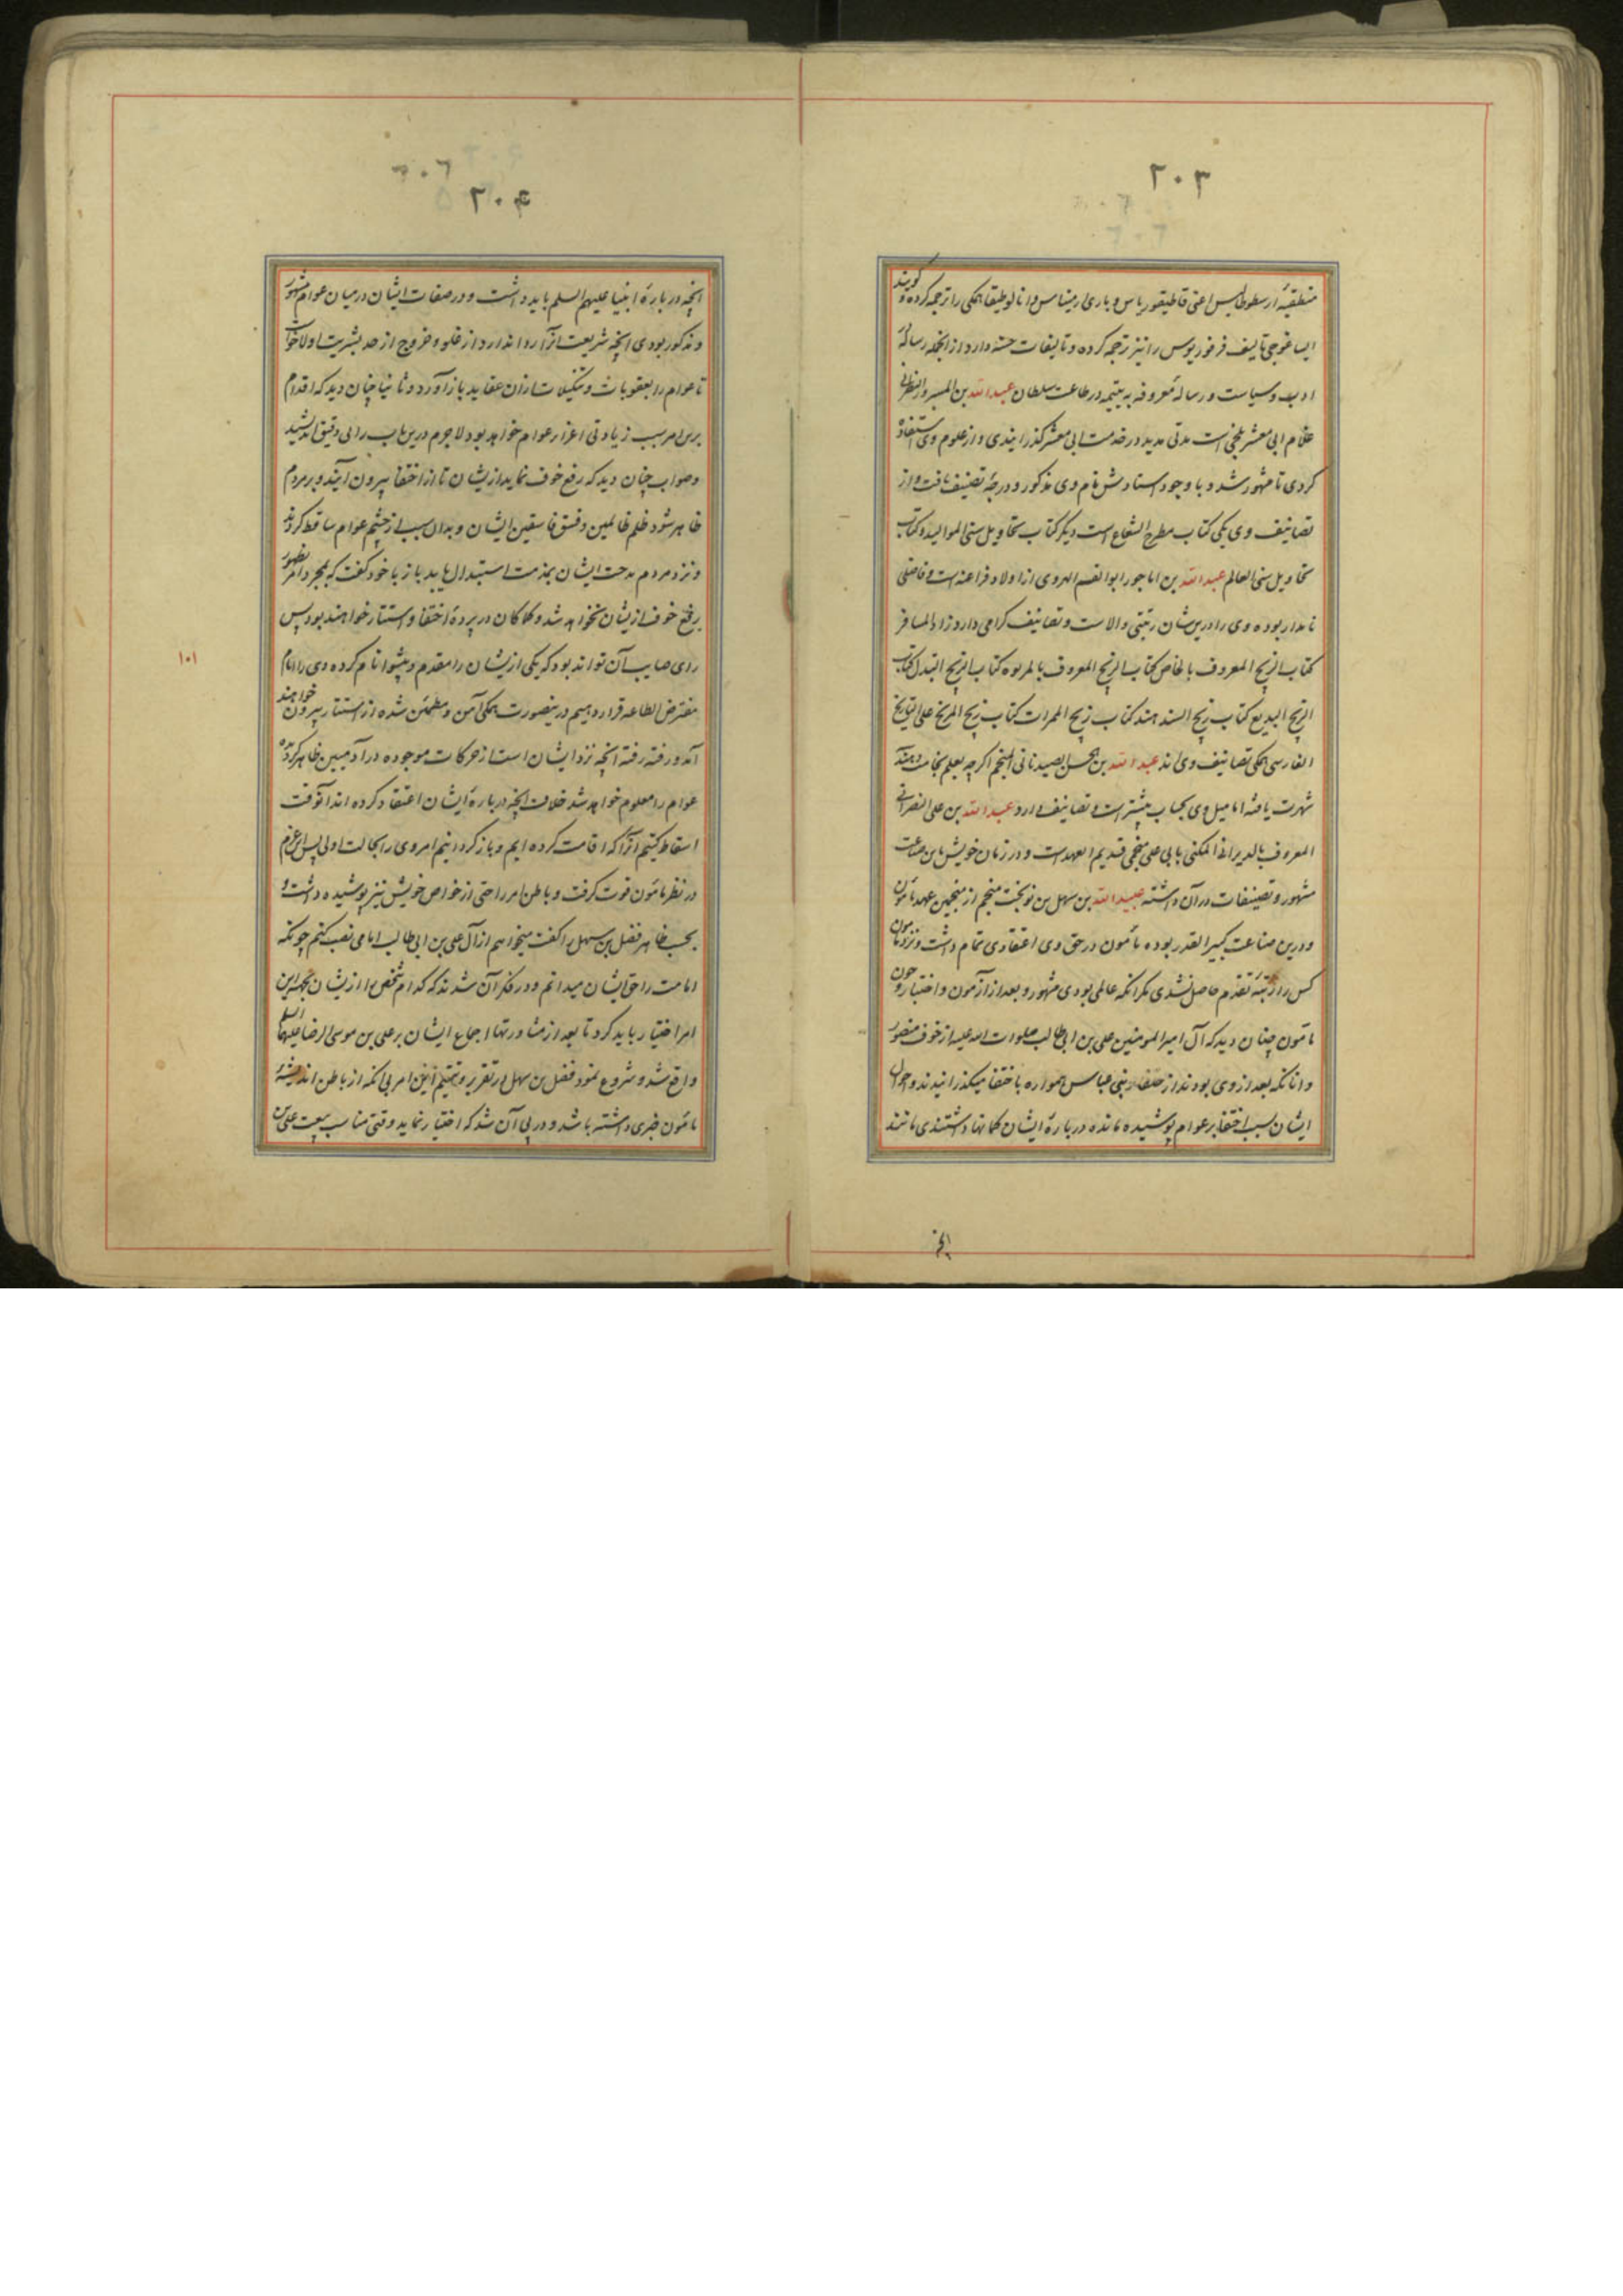 ۲۰۳
منطقیهٔ ارسطوطالیس اعنی قاطیغوریاس و باری ارمیناس و انالوطیقا همکی را ترجمه کرده و کویند
ایساغوجی تالیف فرفوریوس را نیز ترجمه کرده و تالیفات حسنه دارد از انجمله رساله
ادب و سیاست و رسالهٔ معروفه به یتیمه در طاعت سلطان عبدالله بن المسرور النصرانی
غلام ابی معشر بلخی است مدتی مدید در خدمت ابی معشر کذرانیدی و از علوم وی استفاده
کردی تا مشهور شد و با وجود استادش نام وی مذکور و درجهٔ تصنیف یافت و از
تصانیف وی یکی کتاب مطرح الشعاع است دیکر کتاب تحاویل سنی الموالید و کتاب
تحاویل سنی العالم عبدالله بن اماجور ابوالقسم الهروی از اولاد فراعنه است و فاضلی
نامدار بوده وی را درین شان رتبتی والاست و تصانیف کرامی دارد زاد المسافر
کتاب الزیج المعروف بالخاص کتاب الزیج المعروف بالمزبوه کتاب الزیج البدل کتاب
الزیج البدیع کتاب زیج السند هند کتاب زیج الممرات کتاب زیج المریخ علی التاریخ
الفارسی همکی تصانیف وی اند عبدالله بن الحسن الصیدنانی المنجم اکرچه بعلم نجامت و هیئة
شهرت یافته اما میل وی بحساب بیشتر است و تصانیف دارد عبدالله بن علی النصرانی
المعروف بالدیرانی المکنی بابی علی منجمی قدیم العهد است و در زمان خویش باین صناعت
مشهور و تصنیفات در آن داشته عبیدالله بن سهل بن نوبخت منجم از منجمین عهد مامون
و درین صناعت کبیر القدر بوده مامون در حق وی اعتقادی تمام داشت و نزد مامون
کس را رتبهٔ تقدم حاصل نشدی مکر انکه عالمی بودی مشهور و بعد از آزمون و اختبار و چون
مامون چنان دید که آل امیرالمومنین علی بن ابی طالب صلوات الله علیه از خوف منصور
و انانکه بعد از وی بودند از خلفاء بنی عباس همواره باختفا میکذرانیدند و احوال
ایشان بسبب اختفا بر عوام پوشیده مانده در بارهٔ ایشان کمانها داشتندی مانند
انچه
۲۰۴
انچه در بارهٔ انبیا علیهم السلم باید داشت و در صفات ایشان در میان عوام مشهور
و مذکور بودی انچه شریعت انرا روا ندارد از غلو و خروج از حد بشریت اولا خواست
تا عوام را بعقوبات و تنکیلات ازان عقاید باز آورد و ثانیا چنان دید که اقدام
برین امر سبب زیادتی اغزار عوام خواهد بود لاجرم درین باب رائی دقیق اندیشید
و صواب چنان دید که رفع خوف نماید از یشان تا از اختفا بیرون آیند و بر مردم
ظاهر شود ظلم ظالمین و فسق فاسقین ایشان و بدان سبب از چشم عوام ساقط کردند
و نزد مردم مدحت ایشان بمذمت استبدال یابد باز با خود کفت که بمجرد امر بظهور
رفع خوف از یشان نخواهد شد و کماکان در پردهٔ اختفا و استتار خواهند بود پس
رای صایب آن تواند بود که یکی از یشان را مقدم و پیشوا نام کرده وی را امام
مفترض الطاعه قرار دهیم درینصورت همکی آمن و مطمئن شده از استتار بیرون خواهند
آمد و رفته رفته انچه نزد ایشان است از حرکات موجوده در آدمیین ظاهر کردیده
عوام را معلوم خواهد شد خلاف انچه در بارهٔ ایشان اعتقاد کرده اند آنوقت
اسقاط کنیم انرا که اقامت کرده ایم و باز کردانیم امر وی را بحالت اولی پس این عزم
در نظر مامون قوت کرفت و باطن امر را حتی از خواص خویش نیز پوشیده داشت و
بحسب ظاهر فضل بن سهل را کفت میخواهم از آل علی بن ابی طالب امامی نصب کنم چونکه
امامت را حق ایشان میدانم و در فکر آن شدند که کدام شخص را از یشان بجهه این
امر اختیار باید کرد تا بعد از مشاورتها اجماع ایشان بر علی بن موسی الرضا علیهما السلم
واقع شد و شروع نمود فضل بن سهل در تقریر و تتمیم این امر بی انکه از باطن اندیشهٔ
مامون خبری داشته باشد و در پی آن شد که اختیار نماید وقتی مناسب بیعت علی بن
۱۰۱